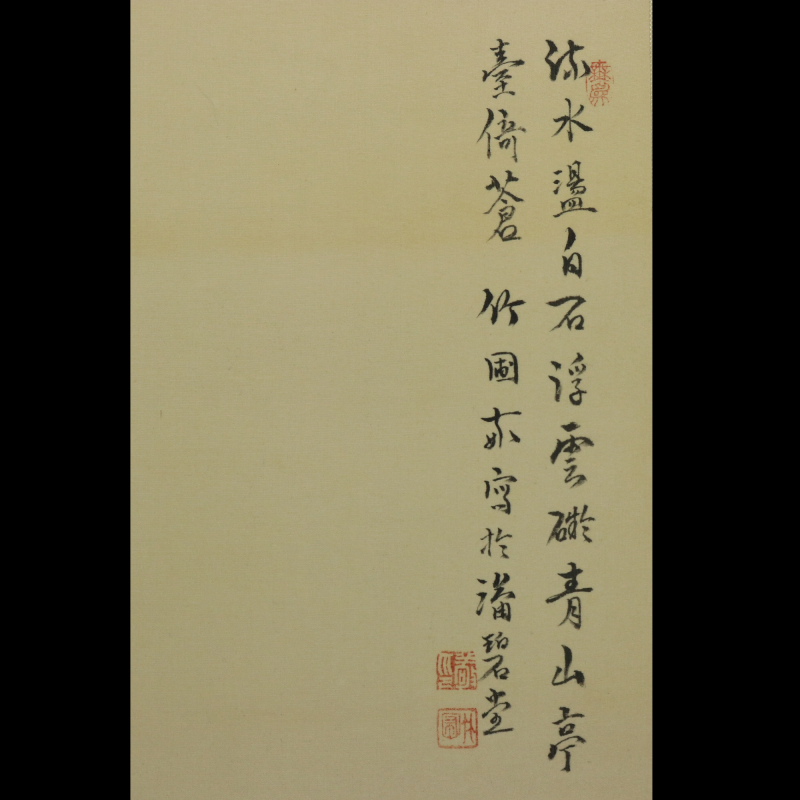 流水溫白石浮雲礙青山亭
臺倚蒼 竹圃敬寫於潘碧堂